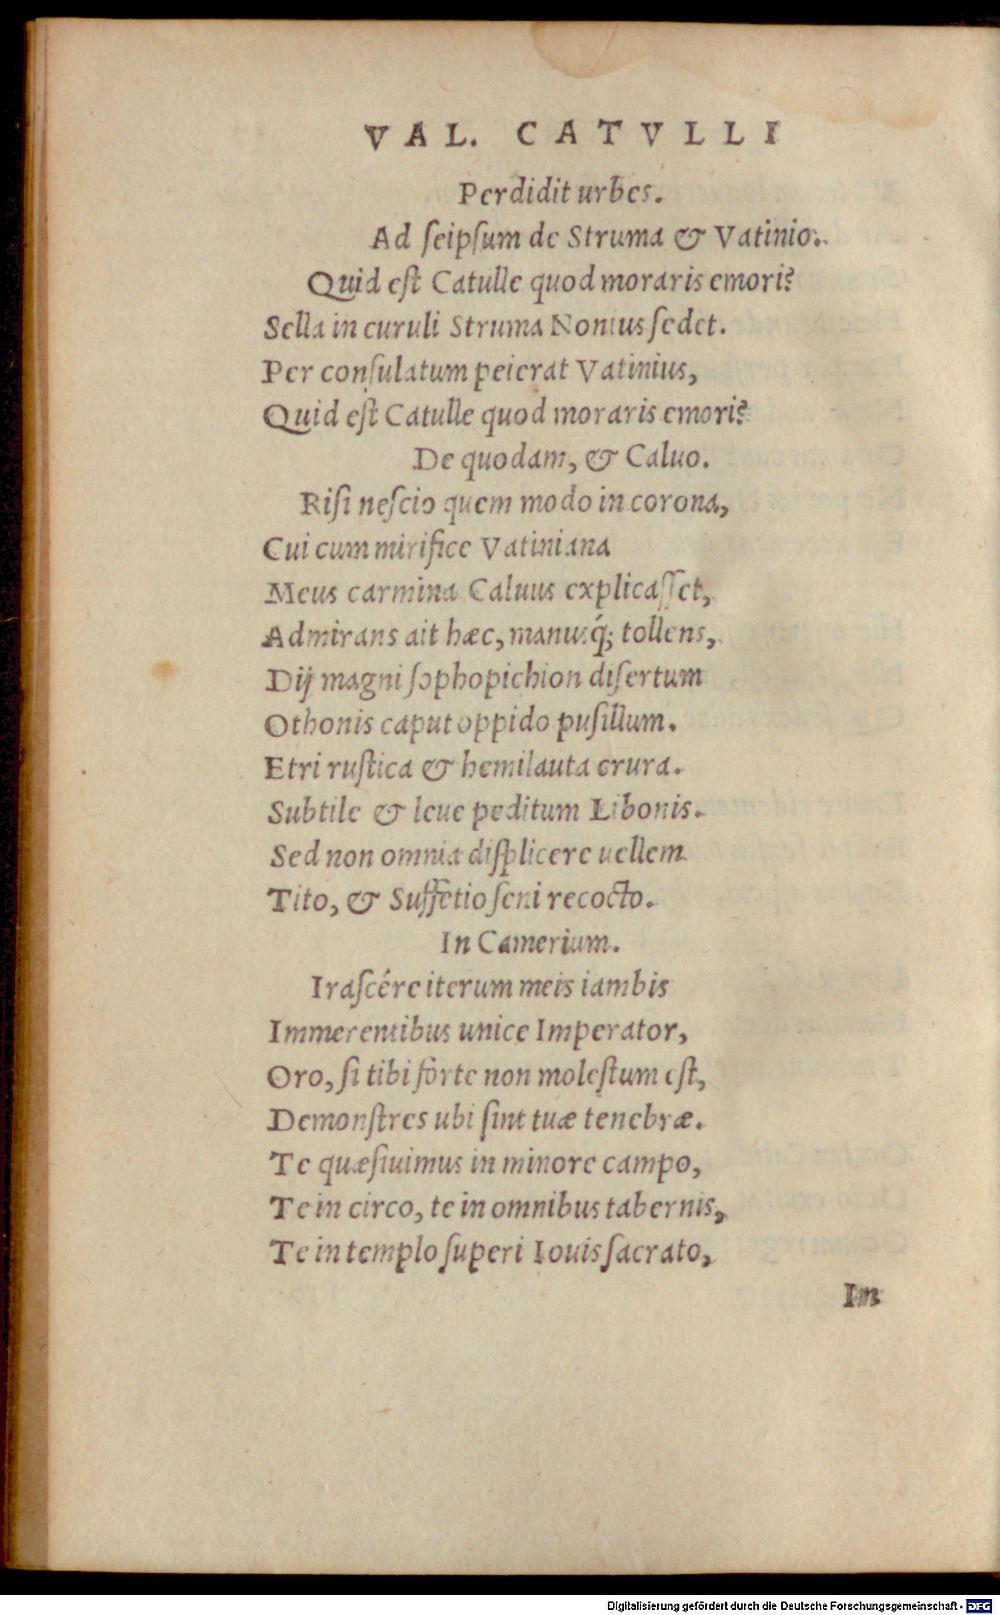 VAL. CATVLLI
Perdidit urbes.
Ad ſeipſum de Struma & Vatinio.
Quid eſt Catulle quod moraris emori?
Sella in curuli Struma Nonius ſedet.
Per conſulatum peierat Vatinius,
Quid eſt Catulle quod moraris emori?
De quodam, & Caluo.
Riſi neſcio quem modo in corona,
Cui cum mirifice Vatiniana
Meus carmina Caluus explicaſſet,
Admirans ait hæc, manusq́; tollens,
Dij magni ſophopichion diſertum
Othonis caput oppido puſillum.
Etri ruſtica & hemilauta crura.
Subtile & leue peditum Libonis.
Sed non omnia diſplicere uellem
Tito, & Suffetio ſeni recocto.
In Camerium.
Iraſcére iterum meis iambis
Immerentibus unice Imperator,
Oro, ſi tibi forte non moleſtum eſt,
Demonſtres ubi ſint tuæ tenebræ.
Te quæſiuimus in minore campo,
Te in circo, te in omnibus tabernis,
Te in templo ſuperi Iouis ſacrato,
In
Digitalisierung gefördert durch die Deutsche Forschungsgemeinschaft - DFG